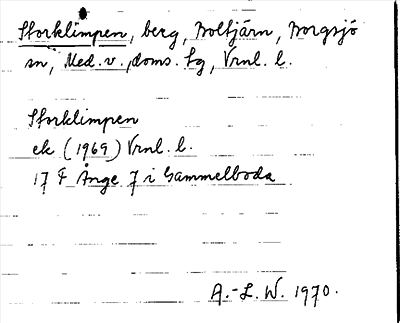 Storklimpen, berg, Boltjärn, Borgsjö
sn, Med. v., doms. lg, Vrnl. l.
Storklimpen
ek (1969) Vrnl. l.
17 F Ånge 7 i Gammelboda
A.-L. W. 1970.